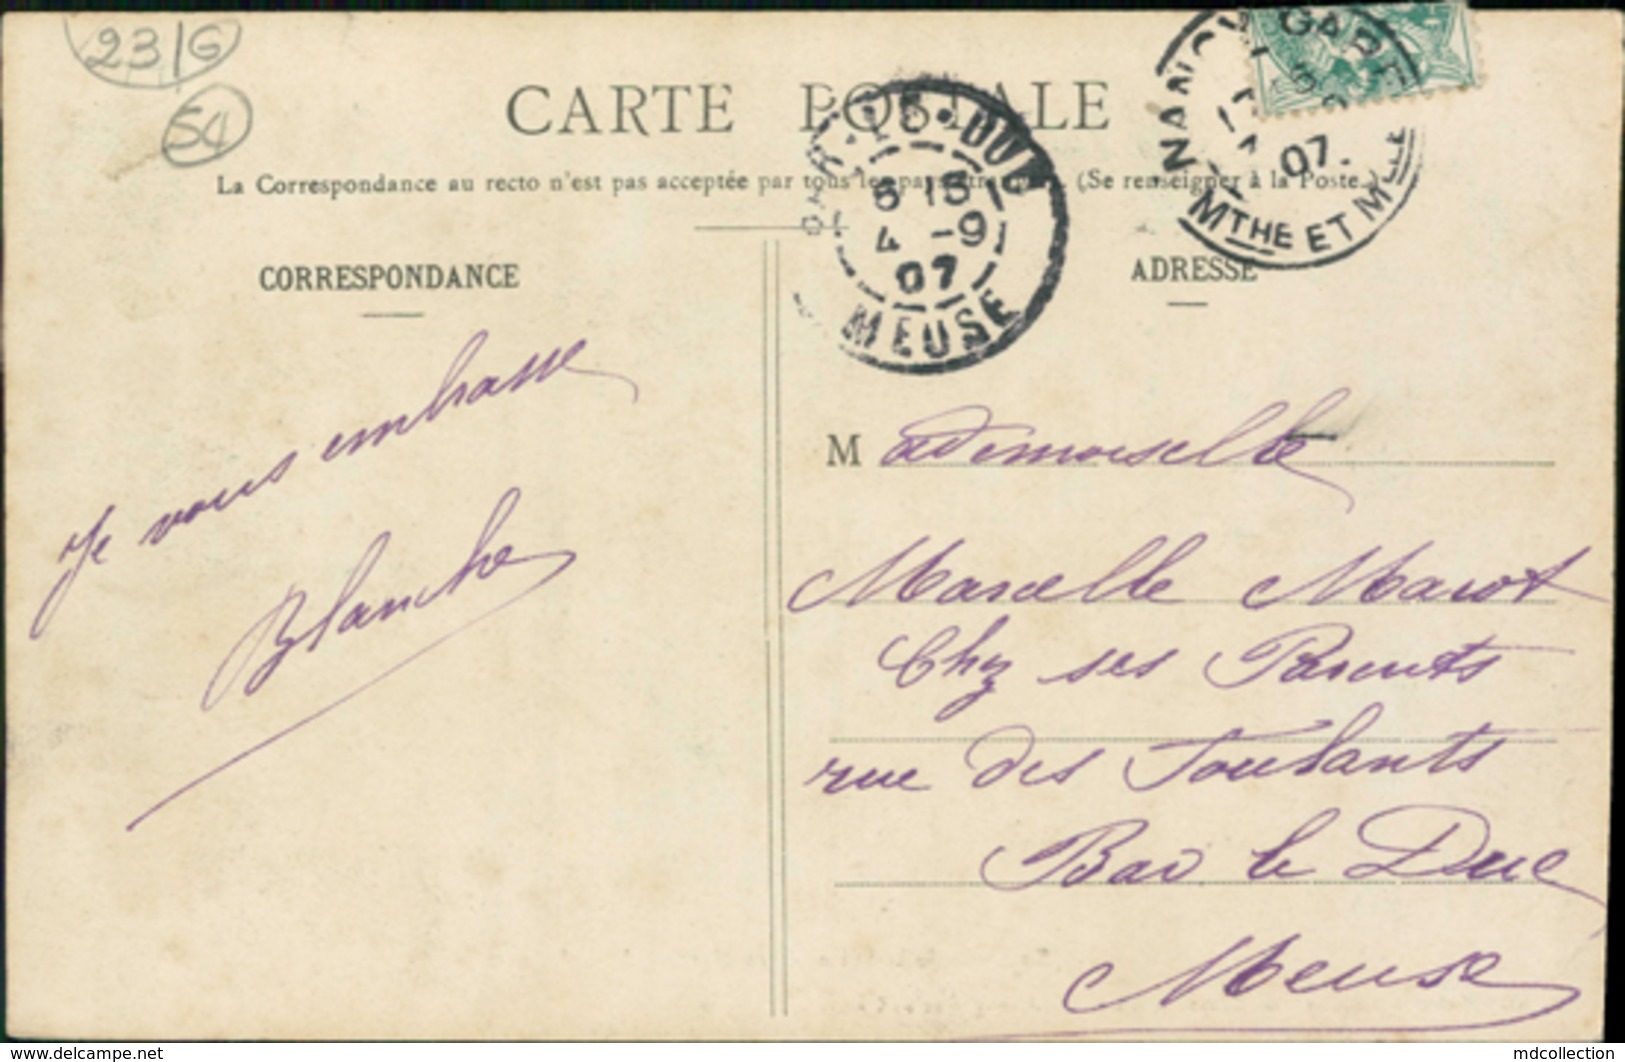 23/6
54
CARTE POSTALE
La Correspondance au recto n'est pas acceptée par tous les pays étrangers. (Se renseigner à la Poste.)
BAR-LE-DUC
6 15
4 -9
07
MEUSE
NANCY GARE
07.
MTHE ET MLLE
CORRESPONDANCE
ADRESSE
Je vous embrasse
Blanche
Mademoiselle
Marcelle Marot
Chez ses Parents
rue des
Bar le Duc
Meuse
www.delcampe.net
mdcollection